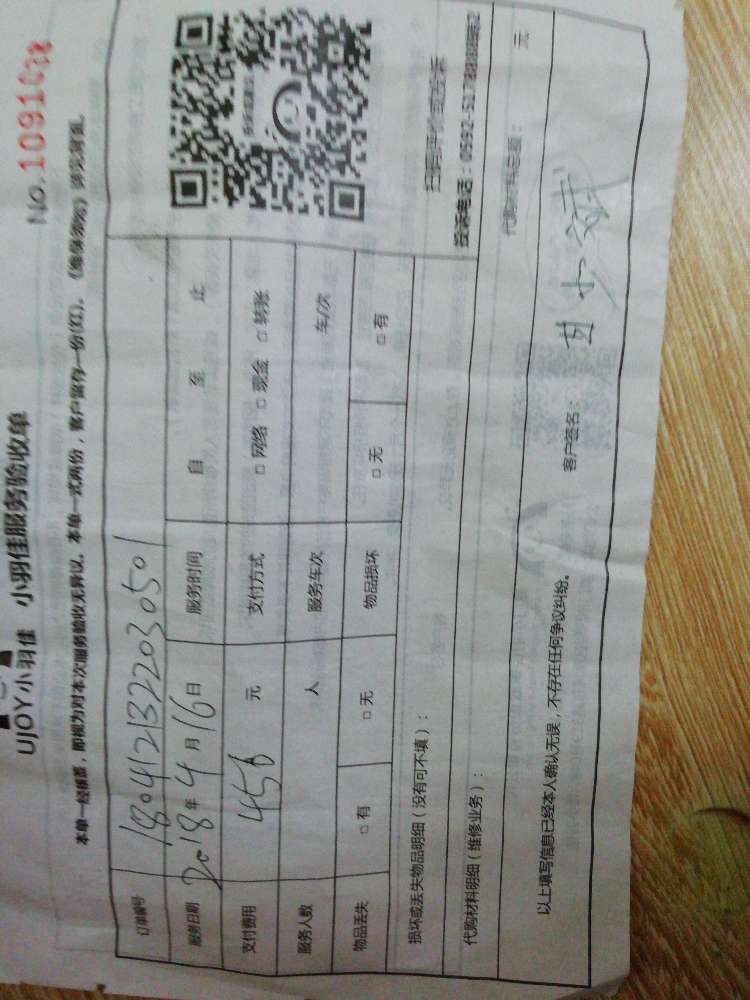 No.10910
UJOY小羽佳 小羽佳服务验收单
本单一经签署，即视为对本次服务验收无异议。本单一式两份，客户留存一份(红)。
订单编号 180412132203050​1
服务日期 2018年4月16日 服务时间 自 至 止
支付费用 456 元 支付方式 □网络 □现金 □转账
服务人数 人 服务车次 车/次
物品丢失 □有 □无 物品损坏 □无 □有
扫码评价或投诉
损坏或丢失物品明细（没有可不填）：
代购材料明细（维修业务）： 代购材料总额： 元
以上填写信息已经本人确认无误，不存在任何争议纠纷。 客户签名： 甘小斌